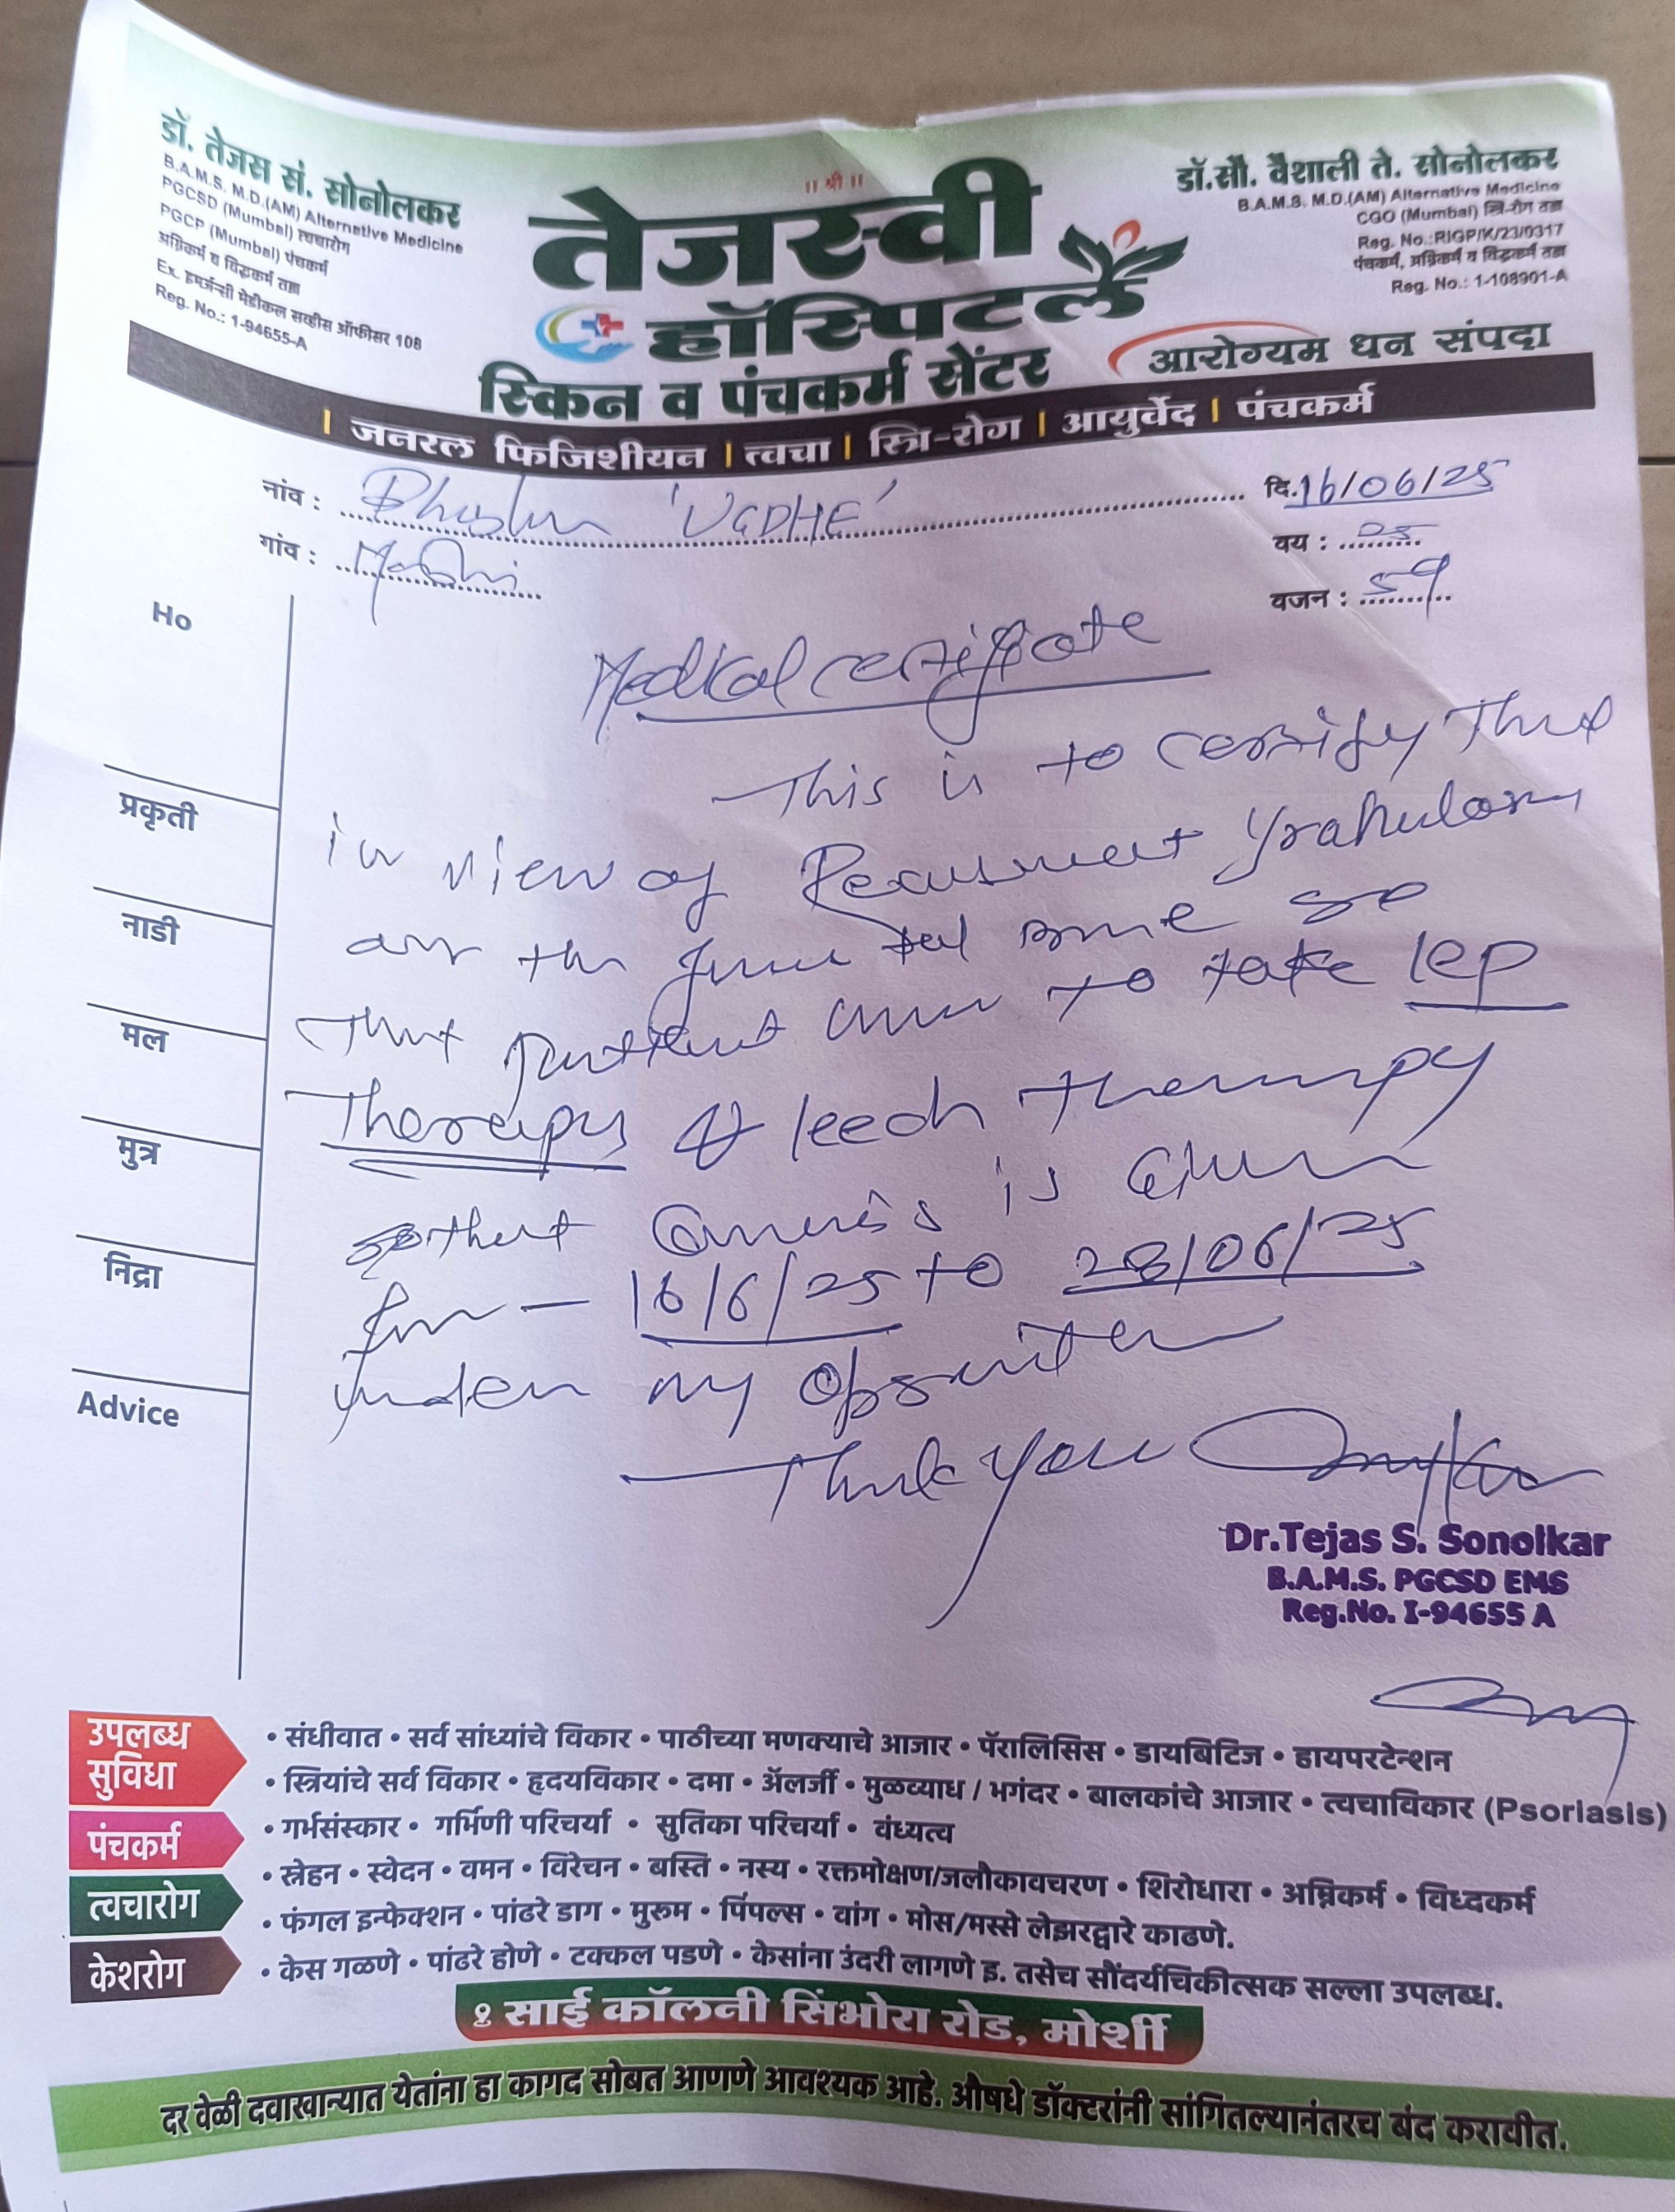 ॥ श्री ॥
डॉ. तेजस सं. सोनोलकर
B.A.M.S. M.D.(AM) Alternative Medicine
PGCSD (Mumbai) त्वचारोग
PGCP (Mumbai) पंचकर्म
अग्निकर्म व विद्धकर्म तज्ञ
Ex. इमर्जन्सी मेडीकल सर्व्हीस ऑफीसर 108
Reg. No.: 1-94655-A
तेजस्वी
हॉस्पिटल
स्किन व पंचकर्म सेंटर
डॉ.सौ. वैशाली ते. सोनोलकर
B.A.M.S. M.D.(AM) Alternative Medicine
CGO (Mumbai) स्त्रि-रोग तज्ञ
Reg. No.:RIGP/K/23/0317
पंचकर्म, अग्निकर्म व विद्धकर्म तज्ञ
Reg. No.: 1-108901-A
आरोग्यम धन संपदा
| जनरल फिजिशीयन | त्वचा | स्त्रि-रोग | आयुर्वेद | पंचकर्म
नांव : 'UGDHE' दि. 16/06/25
गांव : वय : 25
वजन : 59
Ho
प्रकृती
नाडी
मल
मुत्र
निद्रा
Advice
Medical certificate
This is to certify that
in view of Recurrent
on the same so
that patient to take lep
Therapy & leech therapy
that is given
from - 16/6/25 to 28/06/25
under my
Thank you
Dr.Tejas S. Sonolkar
B.A.M.S. PGCSD EMS
Reg.No. I-94655 A
उपलब्ध सुविधा
• संधीवात • सर्व सांध्यांचे विकार • पाठीच्या मणक्याचे आजार • पॅरालिसिस • डायबिटिज • हायपरटेन्शन
• स्त्रियांचे सर्व विकार • हृदयविकार • दमा • ॲलर्जी • मुळव्याध / भगंदर • बालकांचे आजार • त्यचाविकार (Psoriasis)
• गर्भसंस्कार • गर्भिणी परिचर्या • सुतिका परिचर्या • वंध्यत्व
पंचकर्म
• स्नेहन • स्वेदन • वमन • विरेचन • बस्ति • नस्य • रक्तमोक्षण/जलौकावचरण • शिरोधारा • अग्निकर्म • विध्दकर्म
त्वचारोग
• फंगल इन्फेक्शन • पांढरे डाग • मुरूम • पिंपल्स • वांग • मोस/मस्से लेझरद्वारे काढणे.
केशरोग
• केस गळणे • पांढरे होणे • टक्कल पडणे • केसांना उंदरी लागणे इ. तसेच सौंदर्यचिकीत्सक सल्ला उपलब्ध.
साई कॉलनी सिंभोरा रोड, मोर्शी
दर वेळी दवाखान्यात येतांना हा कागद सोबत आणणे आवश्यक आहे. औषधे डॉक्टरांनी सांगितल्यानंतरच बंद करावीत.